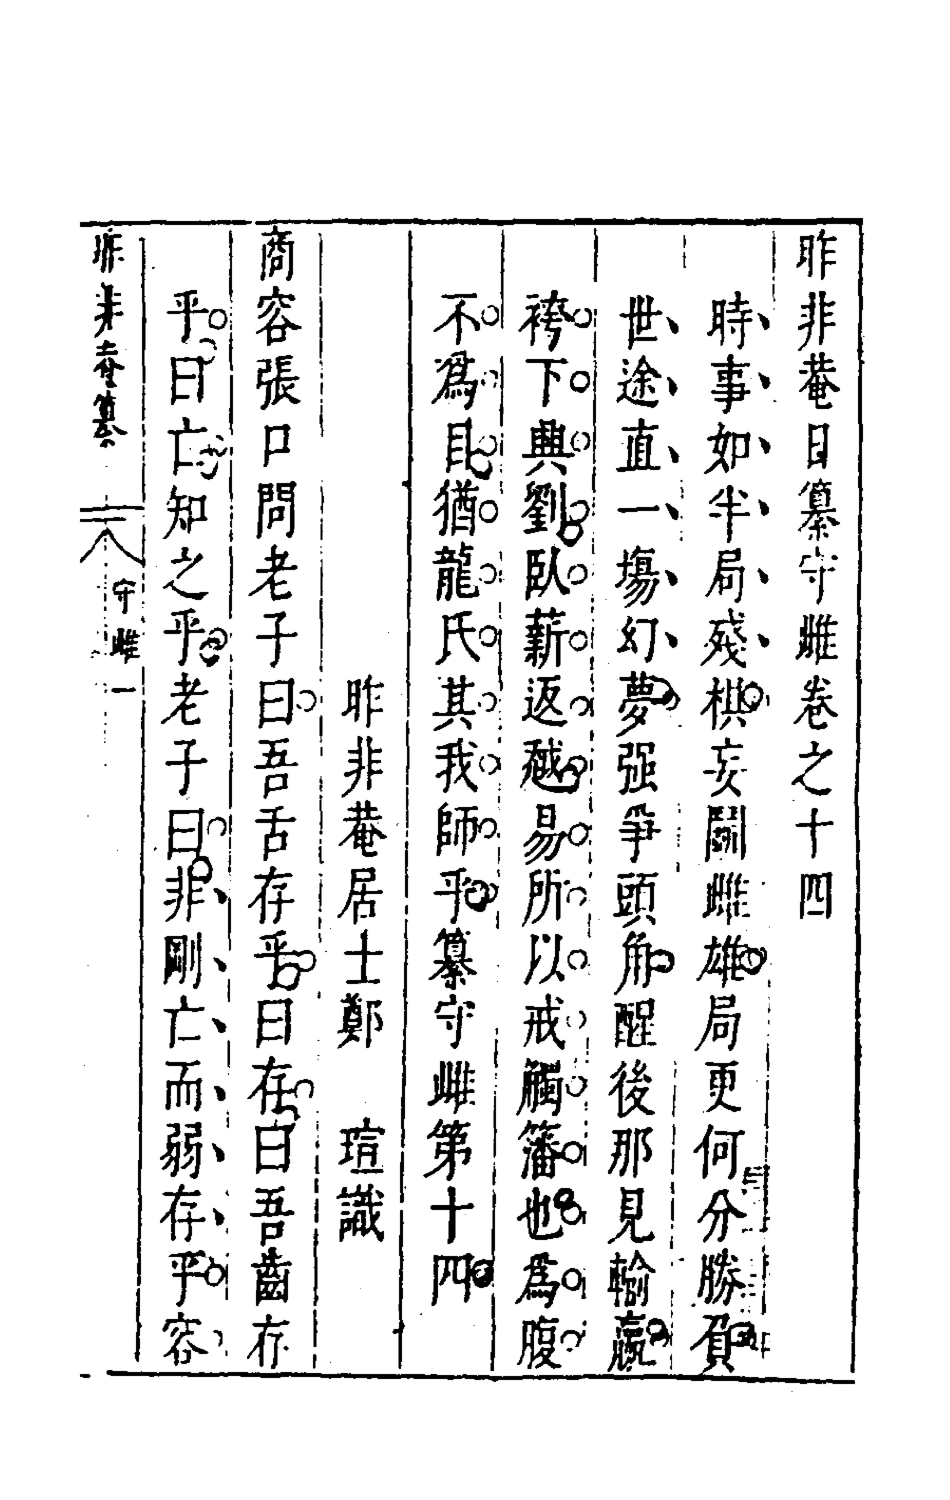 昨非菴日纂守雌卷之十四
時事如半局殘棋妄鬭雌雄局更何分勝負
世途直一場幻夢强爭頭角醒後那見輸贏
袴下興劉臥薪返越易所以戒觸籓也爲腹
不爲目猶龍氏其我師乎纂守雌第十四
昨非菴居士鄭 瑄識
商容張口問老子曰吾舌存乎曰存曰吾齒存
乎曰亡知之乎老子曰非剛亡而弱存乎容
昨非菴纂
守雌一